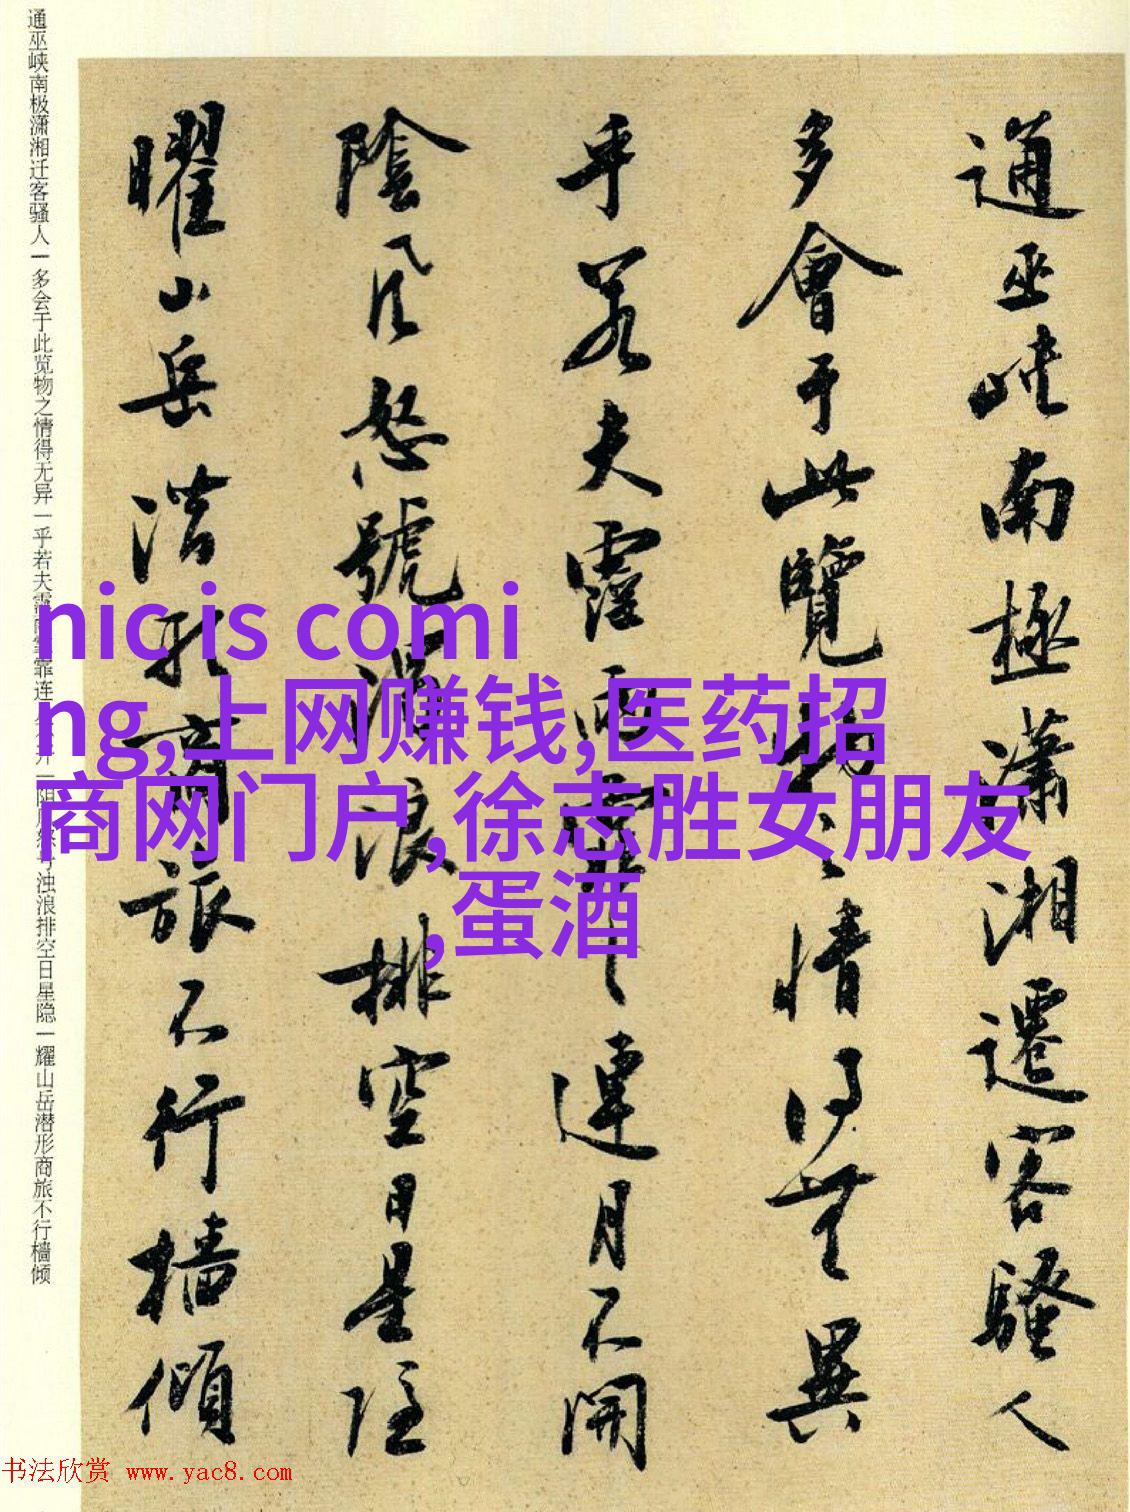 通巫峡南極瀟湘遷客騷人
多會于此覽物之情得無異
乎若夫霪雨霏霏連月不開
陰風怒號濁浪排空日星隱
曜山岳潜形商旅不行檣傾
通巫峡南极潇湘迁客骚人一多会于此览物之情得无异一乎若夫霪雨霏霏连月不开一阴风怒号浊浪排空日星隐一耀山岳潜形商旅不行樯倾
nic is comi
ng,上网赚钱,医药招
商网门户,徐志胜女朋友
,蛋酒
书法欣赏 www.yac8.com